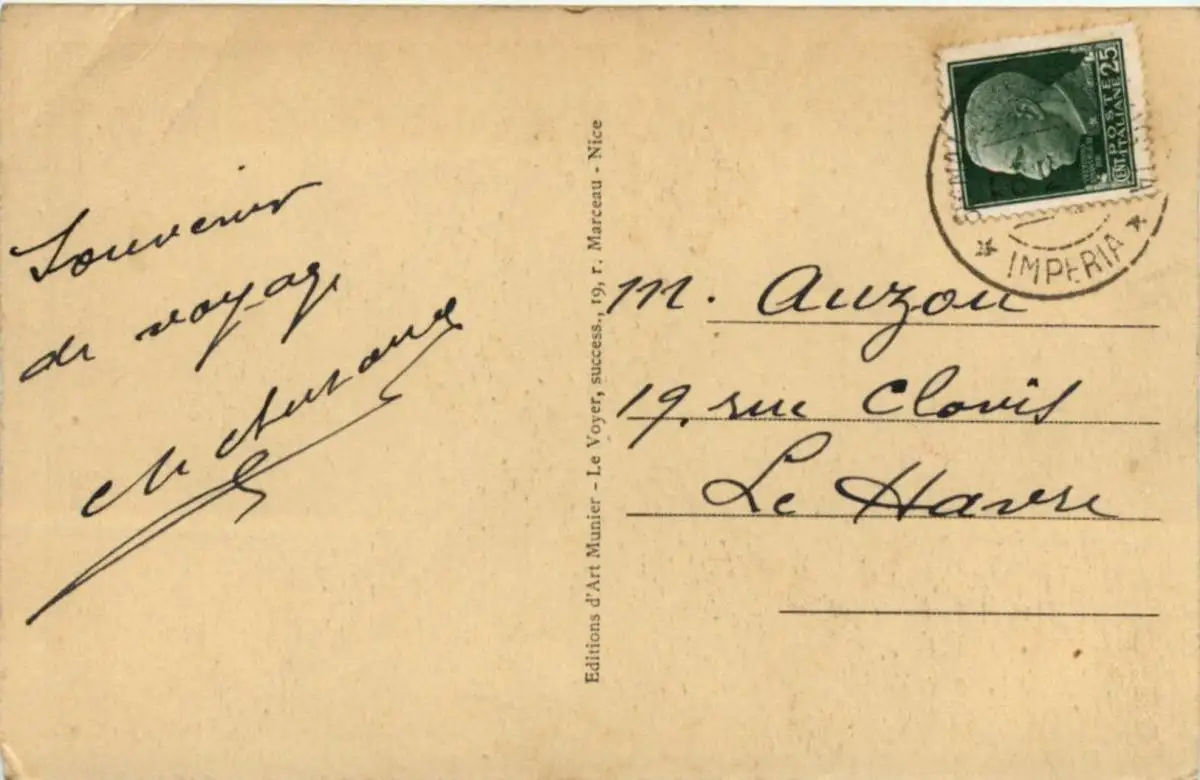 Souvenir
de voyage
Editions d'Art Munier - Le Voyer, success., 19, r. Marceau - Nice
CENT. 25
POSTE
ITALIANE
IMPERIA
M. Auzou
19, rue Clovis
Le Havre